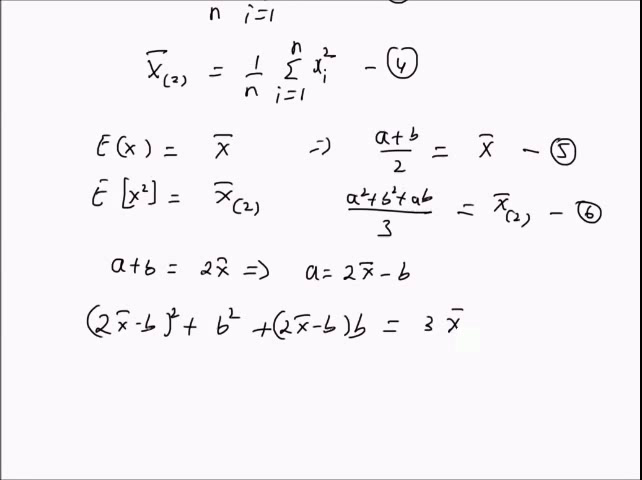 n i=1
x̄₍₂₎ = 1/n Σ_{i=1}^{n} xᵢ² - ④
E(x) = x̄ => a+b/2 = x̄ - ⑤
E[x²] = x̄₍₂₎ a²+b²+ab/3 = x̄₍₂₎ - ⑥
a+b = 2x̄ => a = 2x̄-b
(2x̄-b)² + b² +(2x̄-b)b = 3 x̄